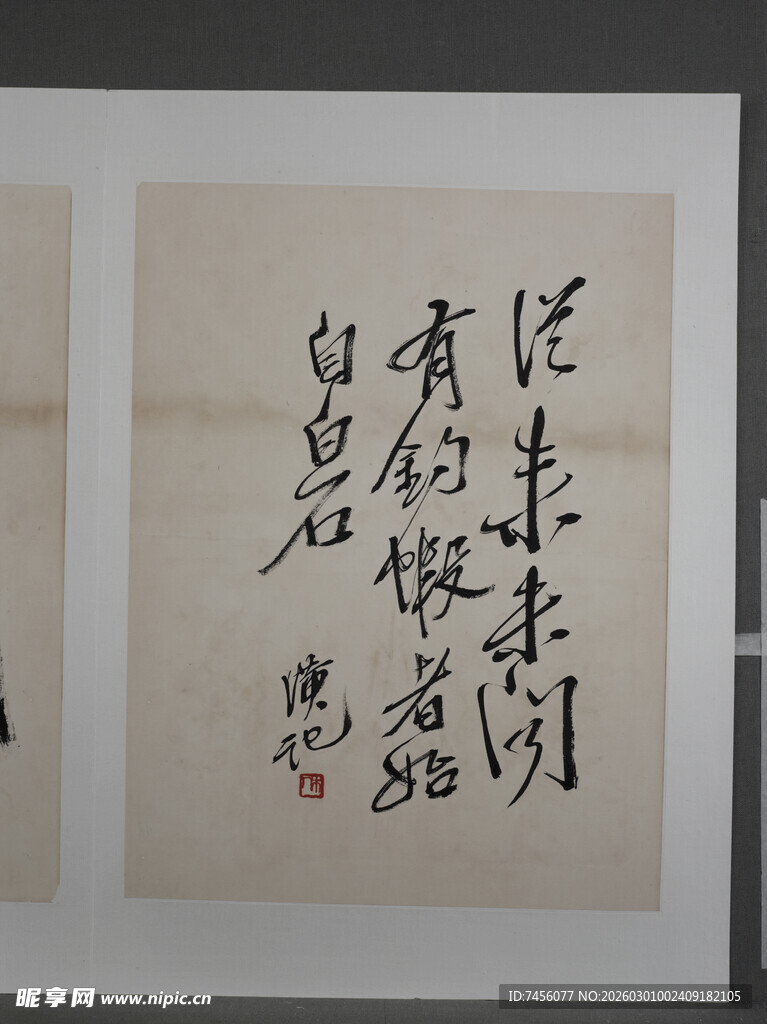 從来未聞
有釣蝦者始
自白石
璜記
木人
昵享网 www.nipic.cn
ID:7456077 NO:20260301002409182105